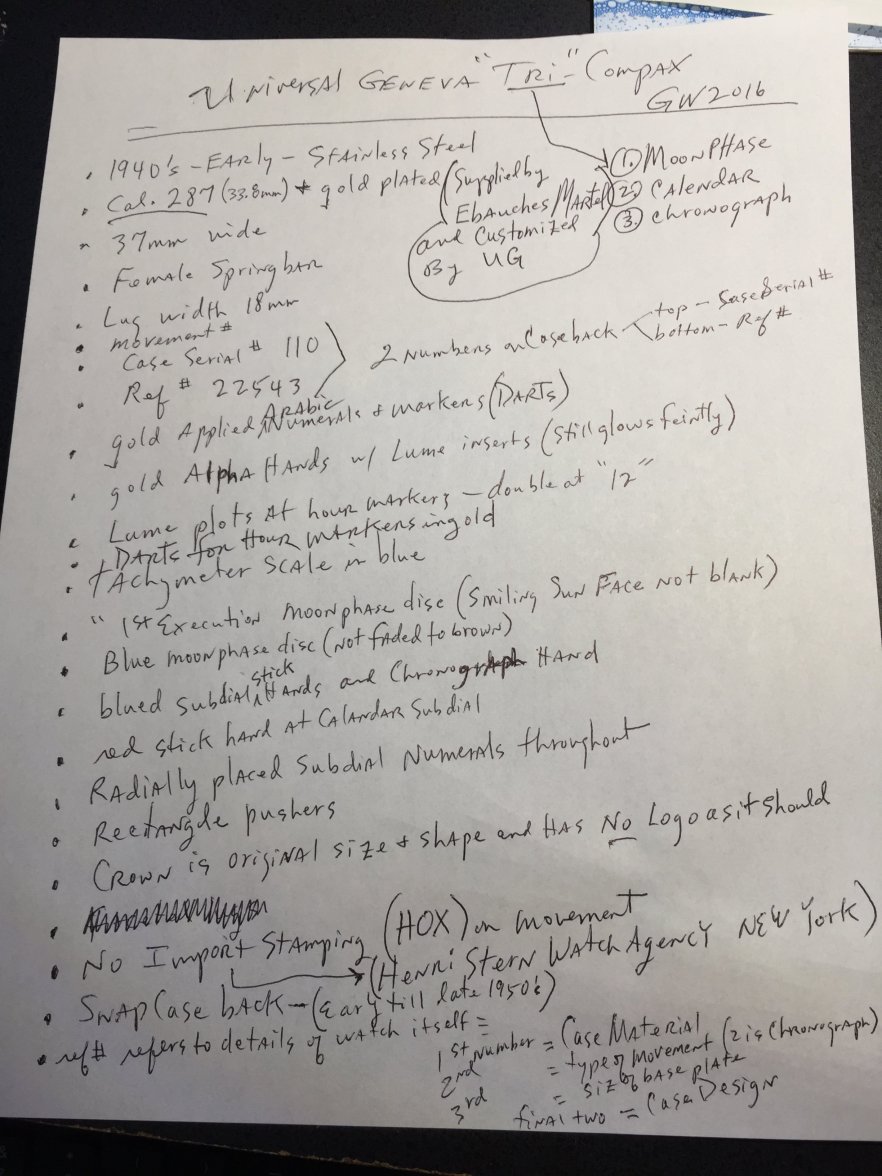 Universal GENEVA "TRi-" Compax
GW2016
• 1940's - EARly - Stainless Steel
• Cal. 287 (33.8mm) + gold plated (Supplied by
Ebauches/Martel
and Customized
By UG
① MOONPHASE
② CALENDAR
③ chronograph
• 37mm wide
• Female Springbar
• Lug width 18mm
• movement #
• Case Serial # 110
Ref # 22543
2 Numbers on Caseback
top - Case Serial #
bottom - Ref #
• gold Applied Arabic Numerals + markers (DARTS)
• gold Alpha Hands w/ Lume inserts (still glows feintly)
• Lume plots At hour markers - double at "12"
• DARTS for Hour MARKERS in gold
• tachymeter SCAle in blue
• "1st Execution moonphase disc (smiling Sun FAce not blank)
• Blue moonphase disc (not faded to brown)
• blued subdial stick Hands and Chronograph HAND
• red stick hand at CALANDAR Subdial
• RADiAlly placed subdial Numerals throughout
• Rectangle pushers
• CROWN is original size + shape and HAS No Logo as it should
• No Import Stamping (HOX) on movement
(Henri Stern WatchAgency NEW York)
• SNAP Case bACK - (Early till late 1950's)
• ref# refers to details of watch itself =
1st number = Case Material
2nd = type of movement (2 is Chronograph)
3rd = siz of base plate
final two = Case Design